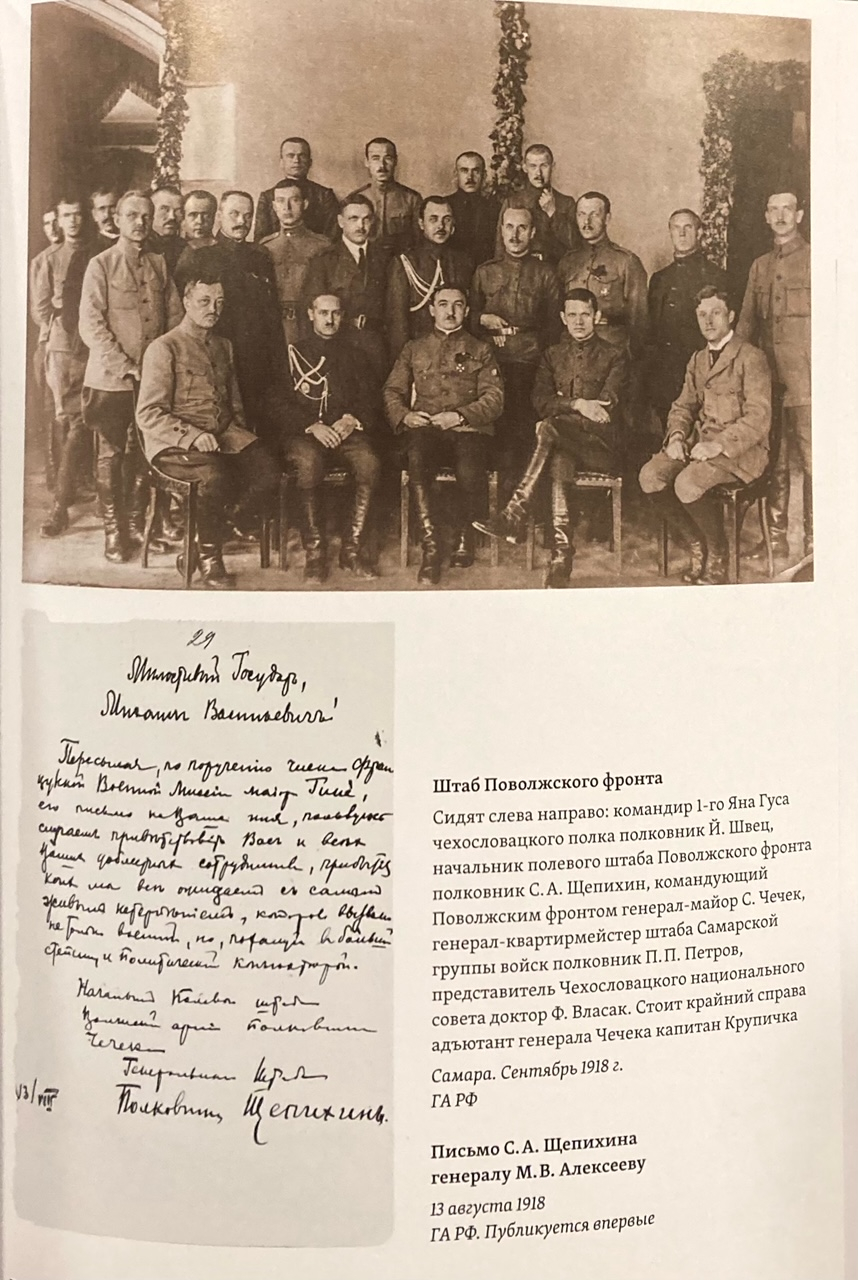 29
Милостивый Государь,
Михаилъ Васильевичъ!
Пересылая, по порученію члена Фран
цузкой Военной Миссіи маіора Гинэ,
его письмо на Ваше имя, пользуюсь
случаемъ привѣтствовать Васъ и всѣхъ
Вашихъ доблестныхъ сотрудниковъ, прибытія
коихъ мы всѣ ожидаемъ съ самымъ
живымъ нетерпѣніемъ, которое вызвано
не только военной, но, пожалуй въ большей
степени и политической конъюктурой.
Начальникъ Полевого штаба
арміи Полковника
Чечека
Генеральнаго Штаба
Полковникъ Щепихинъ.
13/VIII
Штаб Поволжского фронта
Сидят слева направо: командир 1-го Яна Гуса
чехословацкого полка полковник Й. Швец,
начальник полевого штаба Поволжского фронта
полковник С. А. Щепихин, командующий
Поволжским фронтом генерал-майор С. Чечек,
генерал-квартирмейстер штаба Самарской
группы войск полковник П. П. Петров,
представитель Чехословацкого национального
совета доктор Ф. Власак. Стоит крайний справа
адъютант генерала Чечека капитан Крупичка
Самара. Сентябрь 1918 г.
ГА РФ
Письмо С. А. Щепихина
генералу М. В. Алексееву
13 августа 1918
ГА РФ. Публикуется впервые